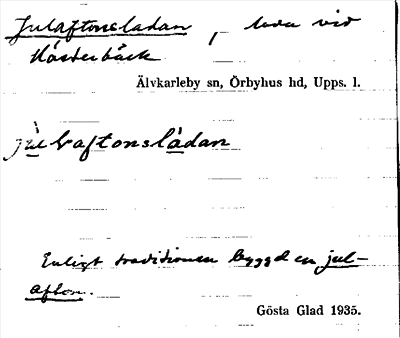 Julaftonsladan, lada vid
Västerbäck
Älvkarleby sn, Örbyhus hd, Upps. l.
julaftonsládan
Enligt traditionen byggd en jul-
afton.
Gösta Glad 1935.